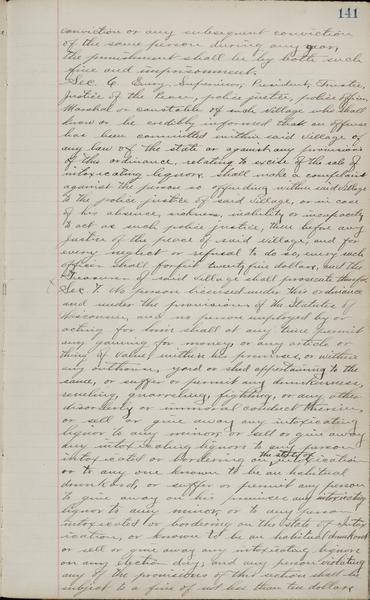 141
conviction or any subsequent conviction
of the same person during any year,
the punishment shall be by both such
fine and imprisonment.
Sec. 6. Every Supervisor, President, Trustee,
Justice of the Peace, police justice, police officer,
Marshal or constable of such village who shall
know or be credibly informed that an offense
has been committed within said village of
any law of the state or against any provisions
of this ordinance, relating to excise or the sale of
intoxicating liquors shall make a complaint
against the person so offending within said village
to the police justice of said village, or in case
of his absence, sickness, inability or incapacity
to act as such police justice, then before any
justice of the peace of said village, and for
every neglect or refusal to do so, every such
officer shall forfeit twenty five dollars, and the
Treasurer of said village shall prosecute therefor.
Sec. 7. No person licensed under this ordinance
and under the provisions of the Statutes of
Wisconsin, and no person employed by or
acting for him shall at any time permit
any gaming for money, or any article or
thing of value, within his premises, or within
any outhouse, yard or shed appertaining to the
same, or suffer or permit any drunkenness,
reveling, quarreling, fighting, or any other
disorderly or immoral conduct therein,
or sell or give away any intoxicating
liquor to any minor, or sell or give away
any intoxicating liquors to any person
intoxicated or bordering on the state of intoxication
or to any one known to be an habitual
drunkard, or suffer or permit any person
to give away on his premises any intoxicating
liquor to any minor, or to any person
intoxicated or bordering on the state of intox
ication, or known to be an habitual drunkard
or sell or give away any intoxicating liquors
on any election day, and any person violating
any of the provisions of this section shall be
subject to a fine of not less than ten dollars